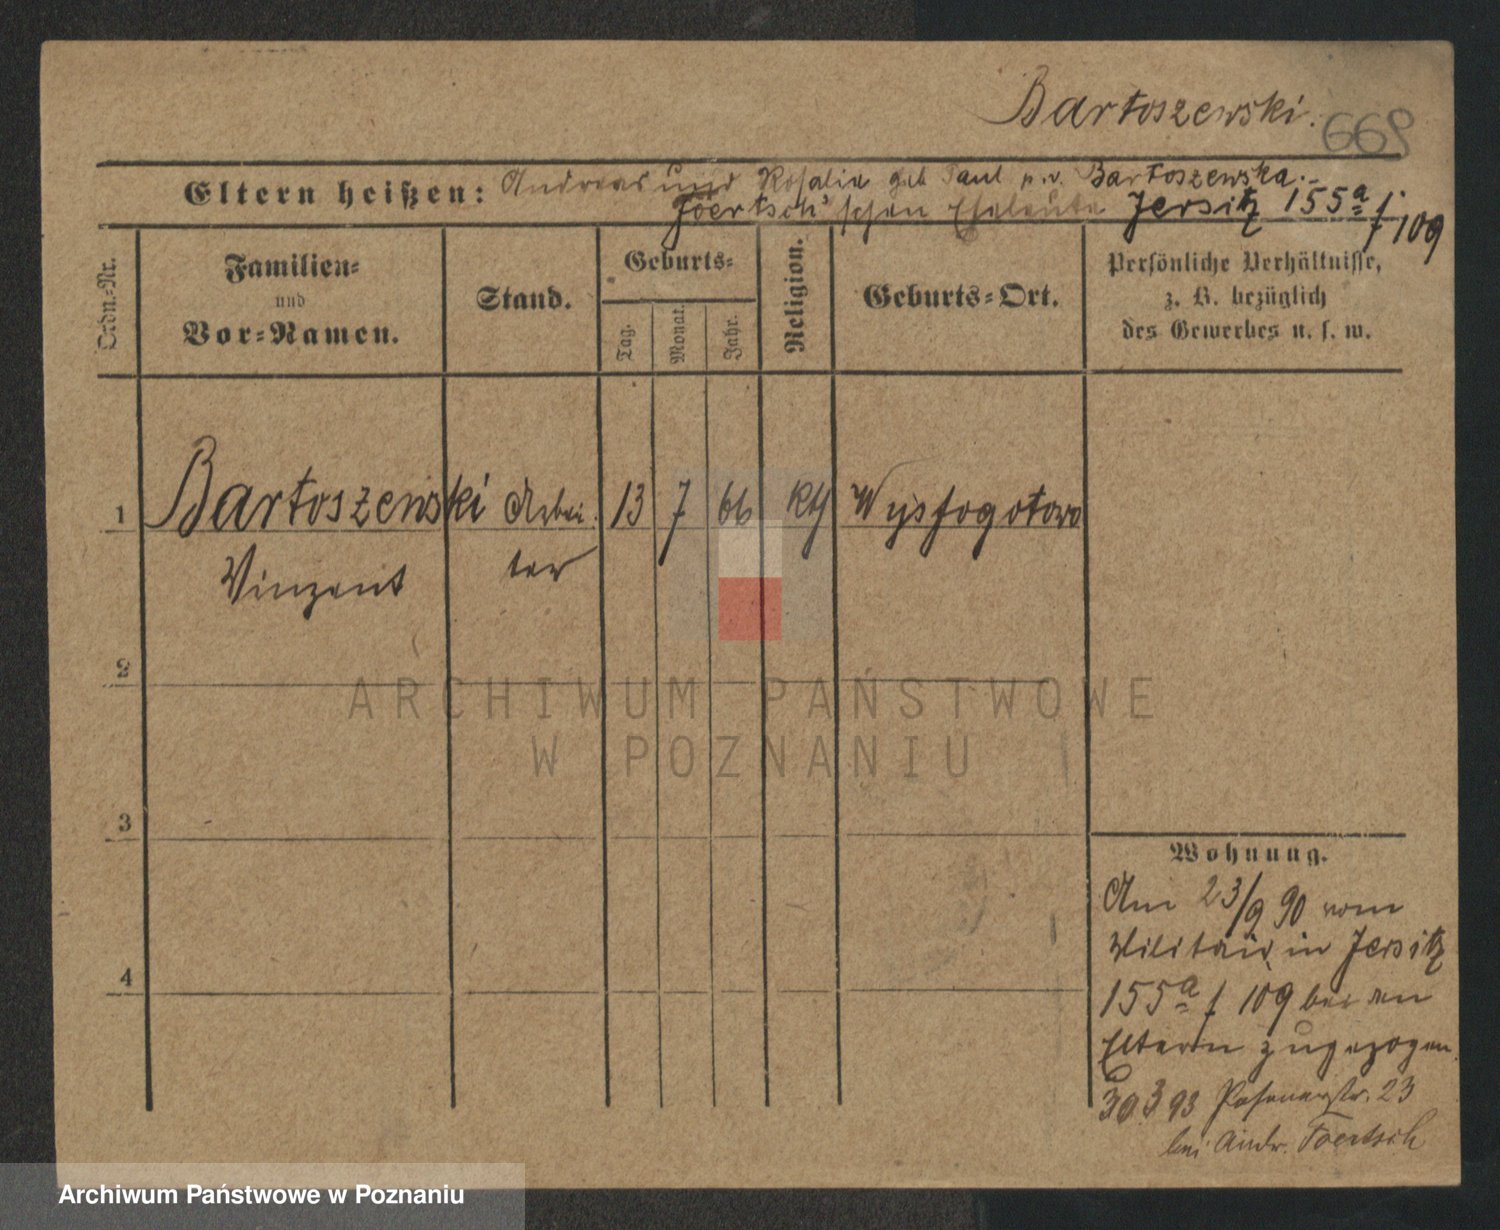 Bartoszewski.
668
Eltern heißen: Andreas und Rosalia geb Paul p. v. Bartoszewska.
Foertsch'schen Eheleute Jersitz 155a f. 109
Ordn.-Nr.
Familien-
und
Vor-Namen.
Stand.
Geburts-
Tag.
Monat.
Jahr.
Religion.
Geburts-Ort.
Persönliche Verhältnisse,
z. B. bezüglich
des Gewerbes u. s. w.
1 Bartoszewski Arbei- 13 7 66 Kth Wyssogotowo
Vinzent ter
2
3
4
Wohnung.
Am 23/9 90 vom
Militair in Jersitz
155a f 109 bei den
Eltern zugezogen.
30.3 93 Posenerstr. 23
bei Andr. Foertsch
ARCHIWUM PAŃSTWOWE
W POZNANIU
Archiwum Państwowe w Poznaniu